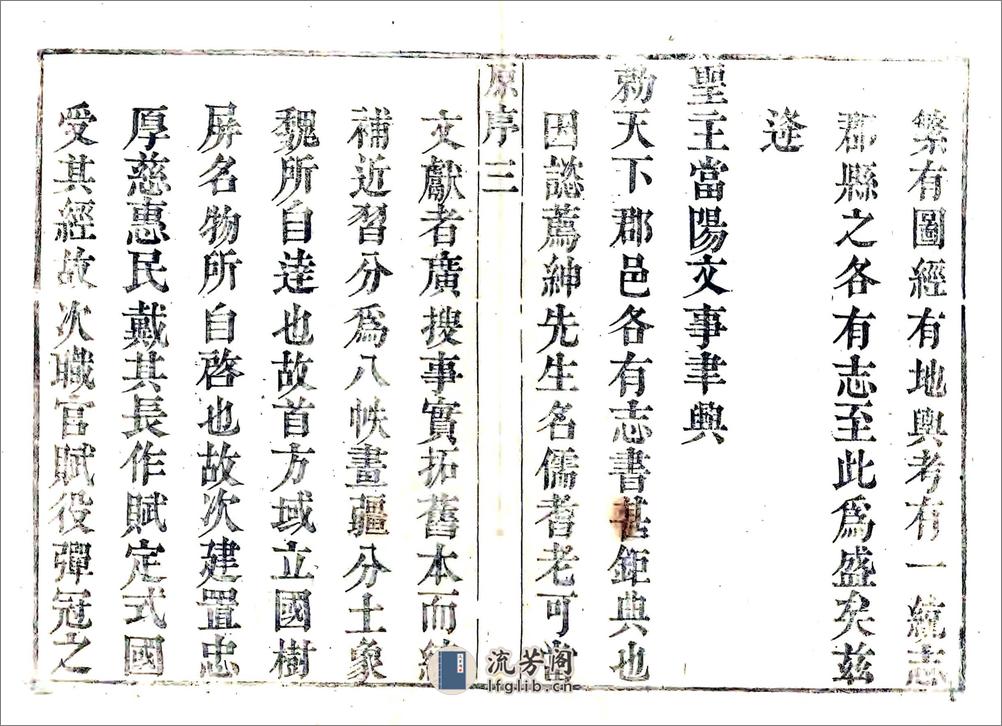 繁有圖經有地輿考有一統志
郡縣之各有志至此爲盛矣茲
逢
聖王當陽文事聿興
勅天下郡邑各有志書甚鉅典也
因諗薦紳先生名儒耆老可當
原序 三
文獻者廣搜事實拓舊本而
補近習分爲八帙畫疆分土象
魏所自逹也故首方域立國樹
屏名物所自啓也故次建置忠
厚慈惠民戴其長作賦定式國
受其經故次職官賦役彈冠之
流芳阁
lfglib.cn